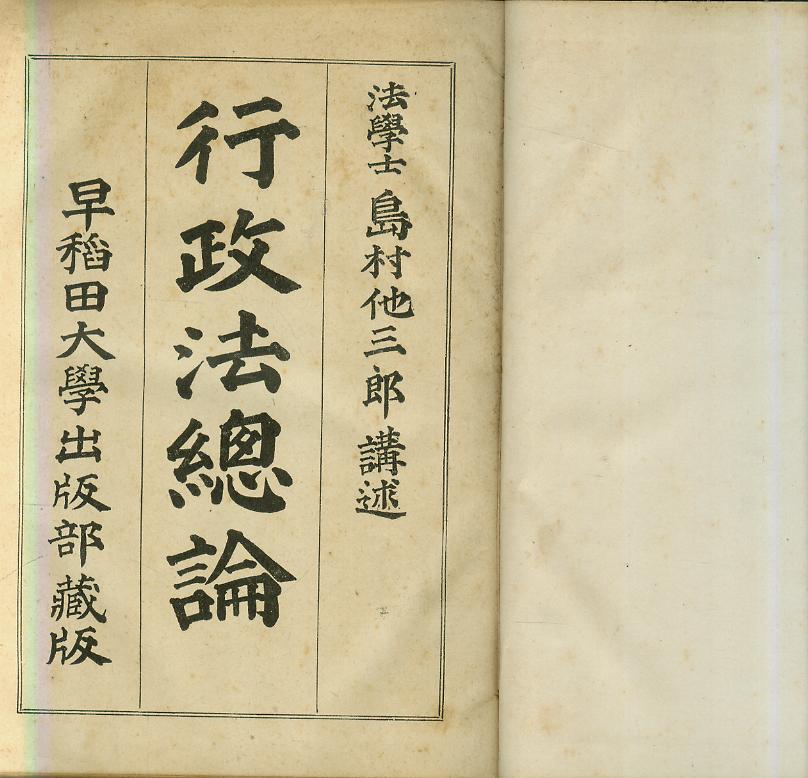 法學士 島村他三郎 講述
行政法總論
早稻田大學出版部藏版